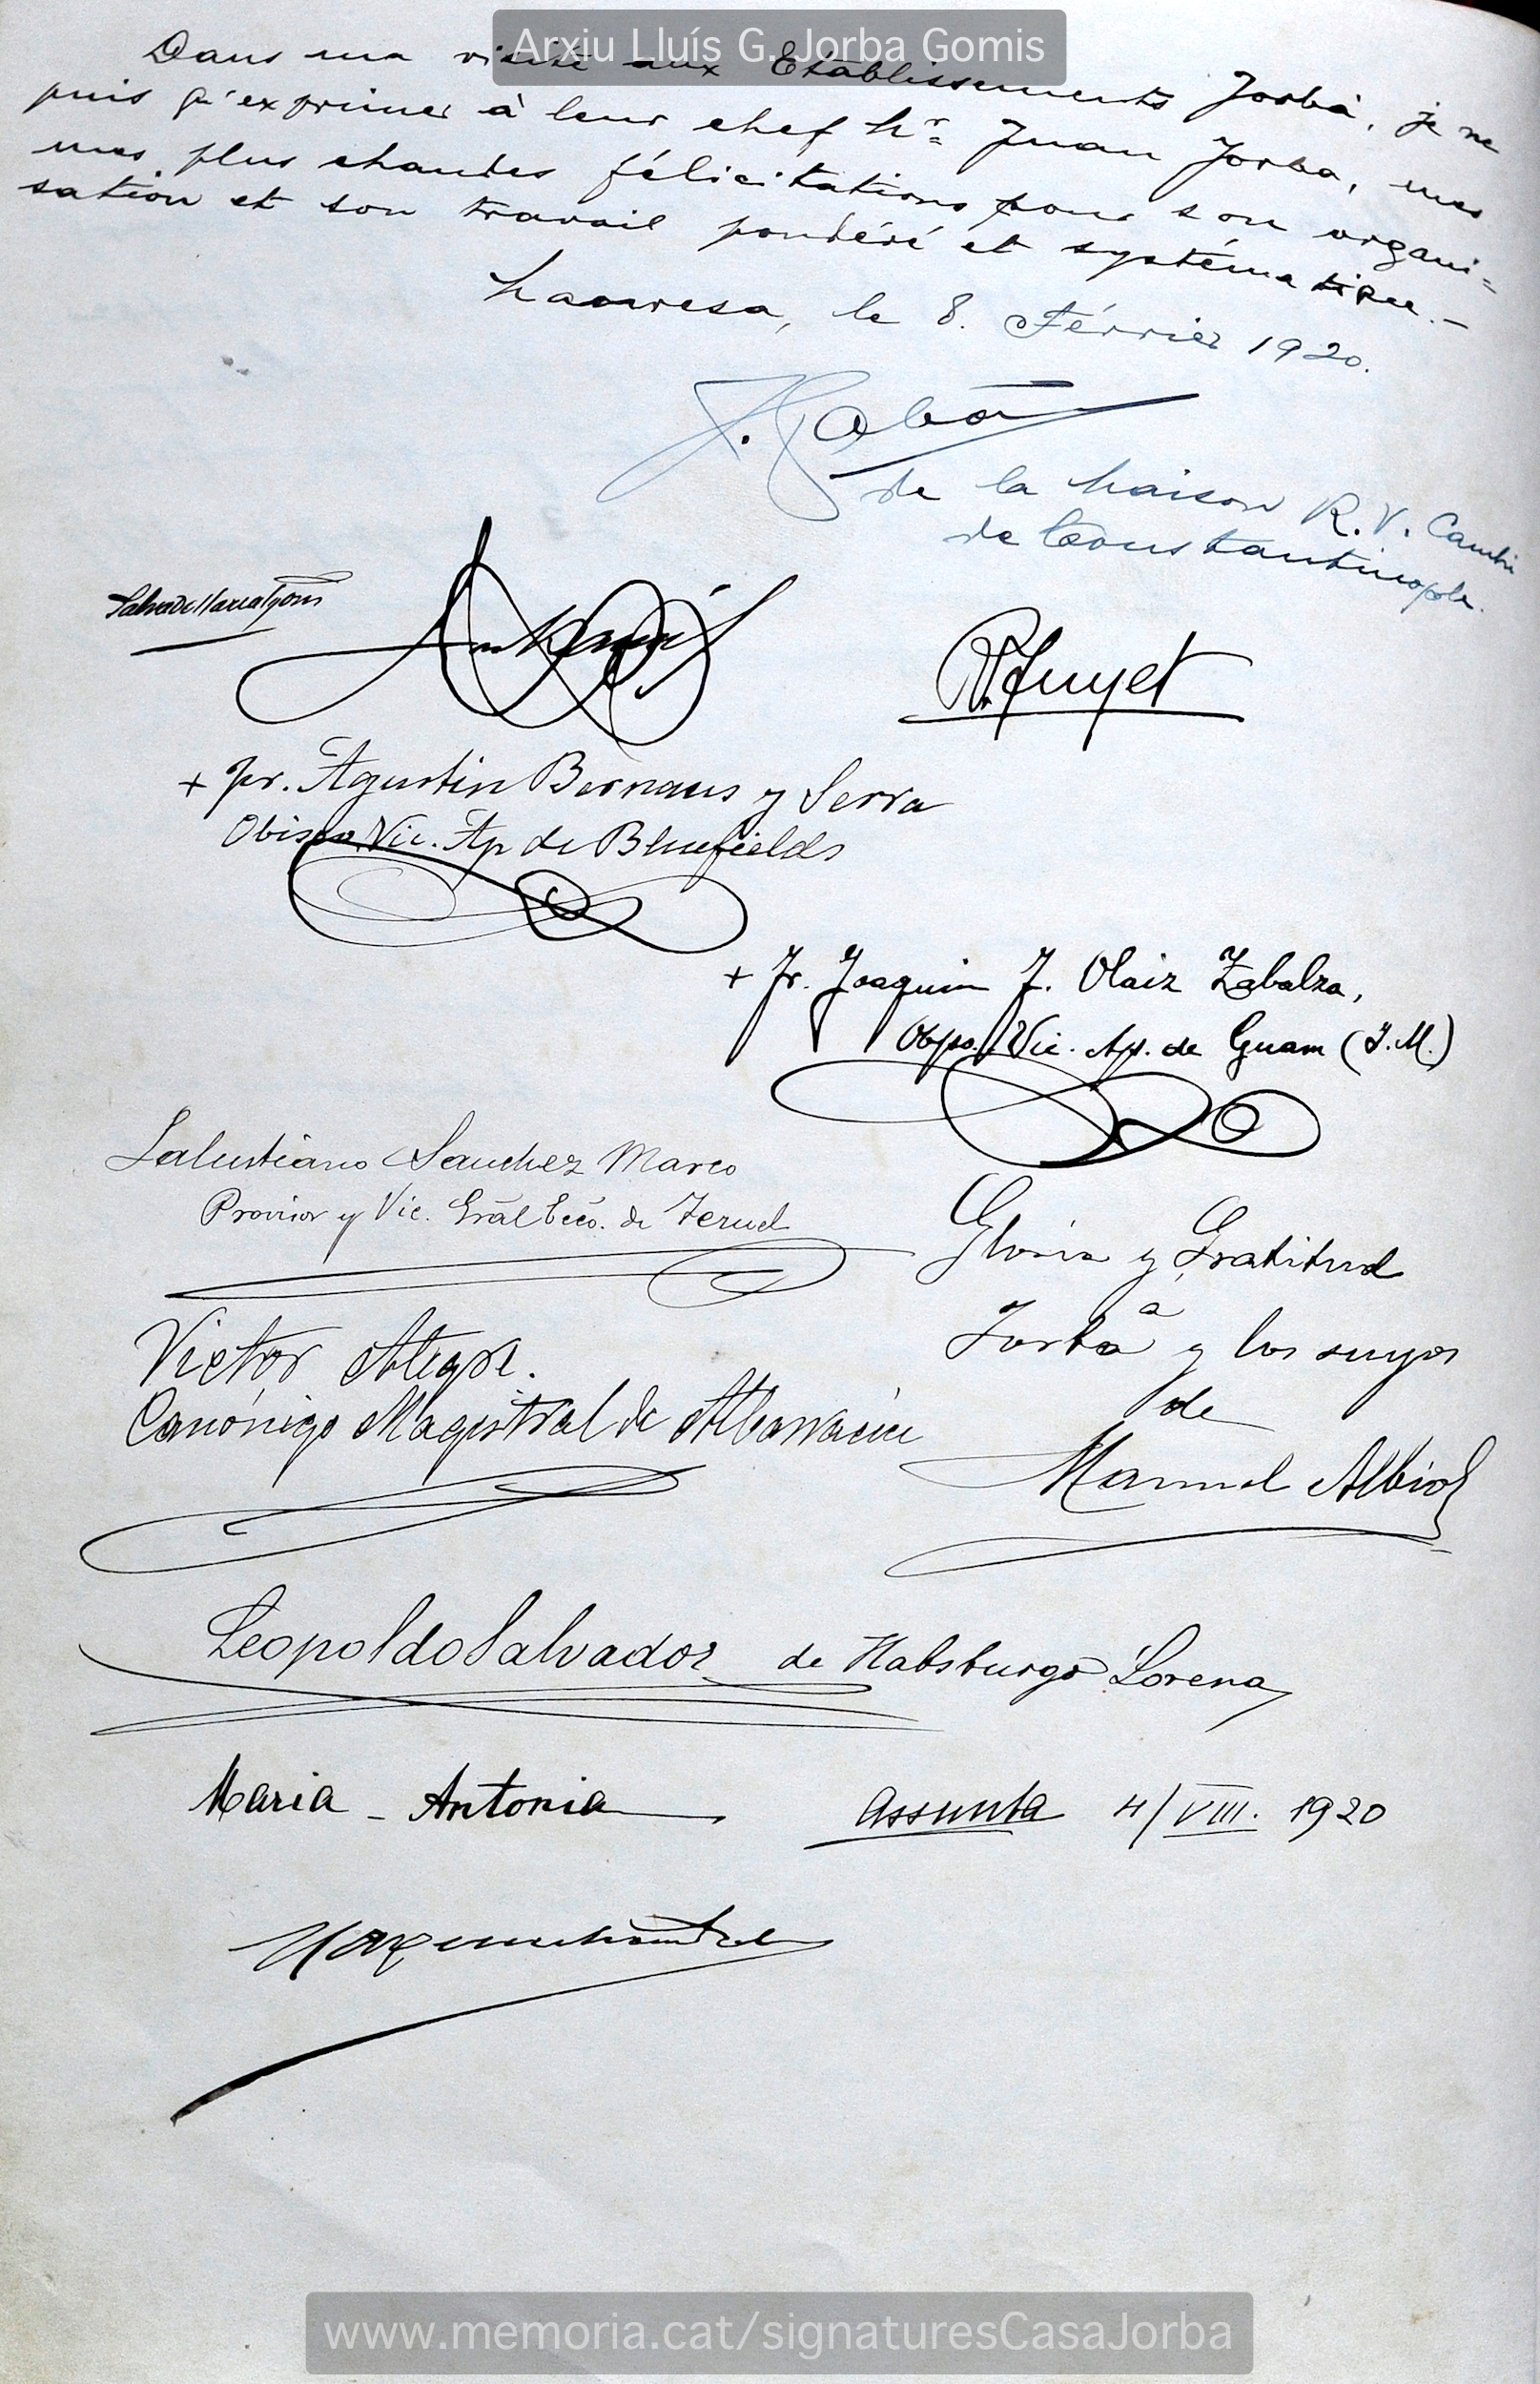 Arxiu Lluís G. Jorba Gomis
Dans ma visite aux Etablissements Jorba, je ne
puis qu'exprimer à leur chef Mr Juan Jorba, mes
mes plus chaudes félicitations pour son organi=
sation et son travail pondéré et systématique.-
Manresa, le 8. Février 1920.
de la Maison R. V.
de Constantinople.
+ Fr. Agustin Bernaus y Serra
Obispo Vic. Ap de Bluefields
+ Fr. Joaquin F. Olaiz Zabalza,
Obpo. Vic. Ap. de Guam (I. M.)
Salustiano Sanchez Marco
Provisor y Vic. Gral Ecco. de Teruel
Gloria y Gratitud
a
Jorba y los suyos
de
Manuel Albiol
Victor Alegre.
Canónigo Magistral de Albarracin
Leopoldo Salvador de Habsburgo Lorena
Maria - Antonia
Assunta 4/VIII. 1920
www.memoria.cat/signaturesCasaJorba